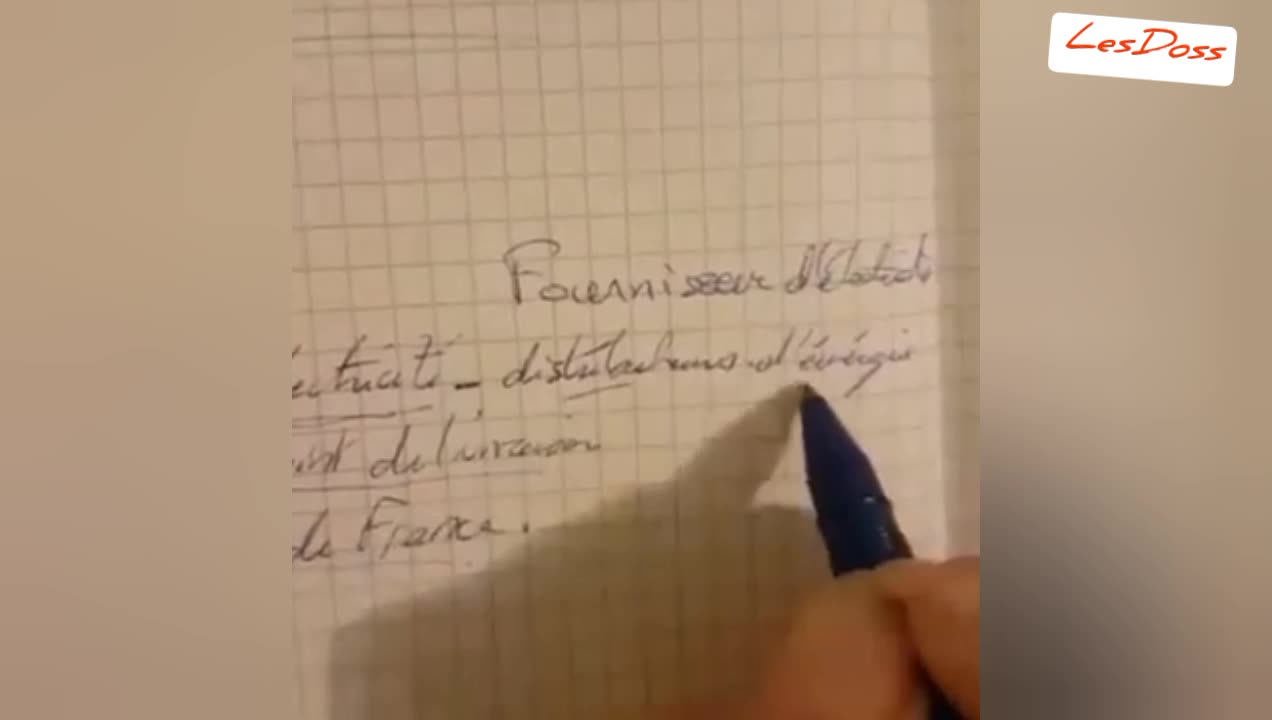 LesDoss
Fournisseur d'électricité
ectricité - distributeurs d'énergie
de livraison
de France.